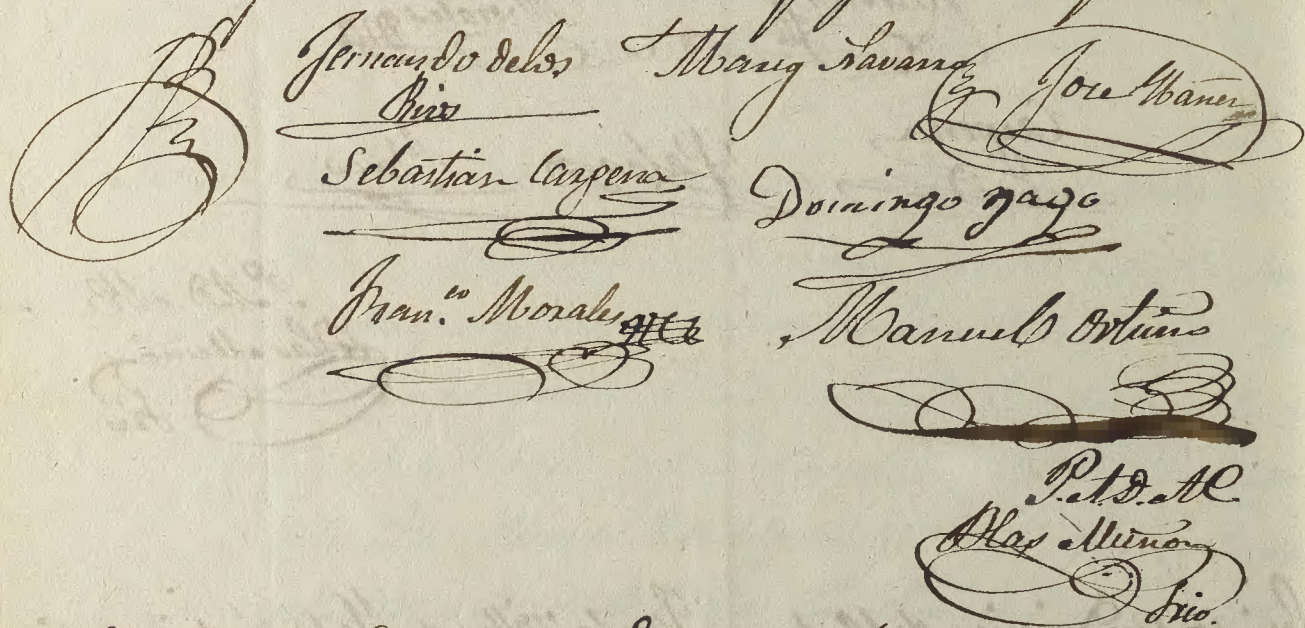 Fernando de los Rios
Navarro
Jose Ybañez
Sebastian
Domingo
Fran.co Morales
Manuel Ortuño
P. A. D. A. C.
Blas Muñoz
Srio.